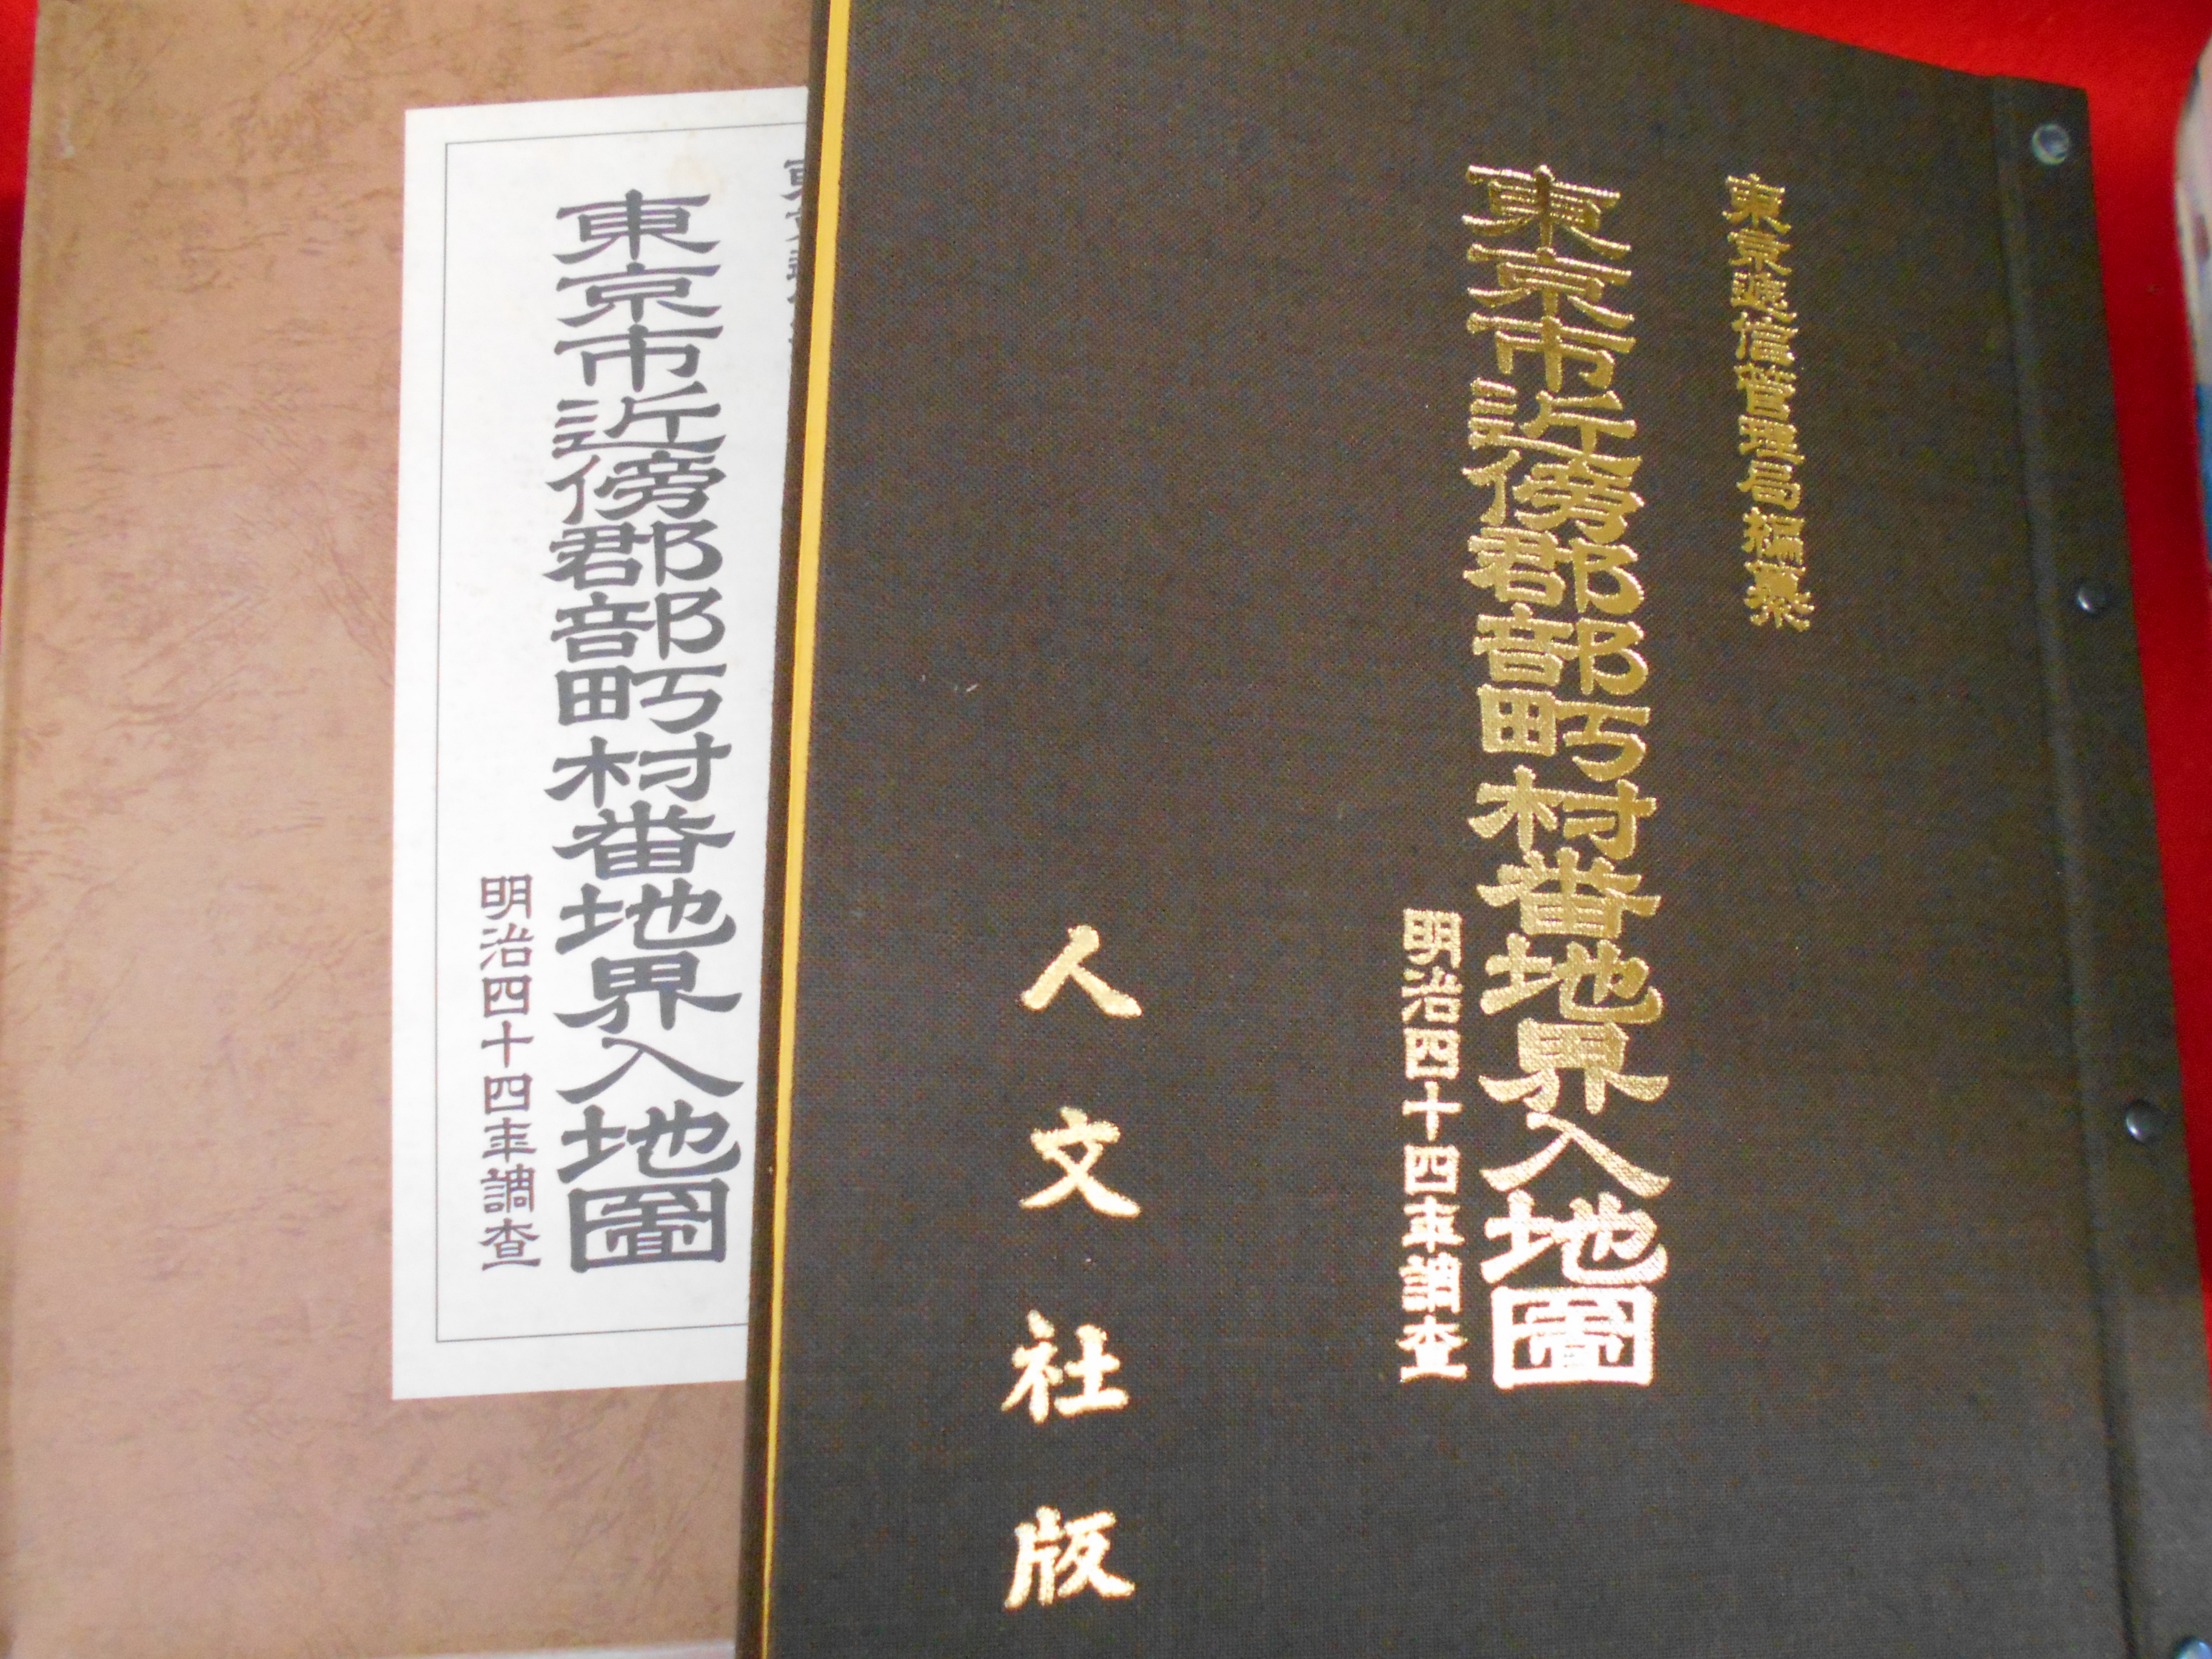 東京逓信管理局編纂
東京市近傍郡部町村番地界入地圖
明治四十四年調査
人文社版
東京市近傍郡部町村番地界入地圖
明治四十四年調査